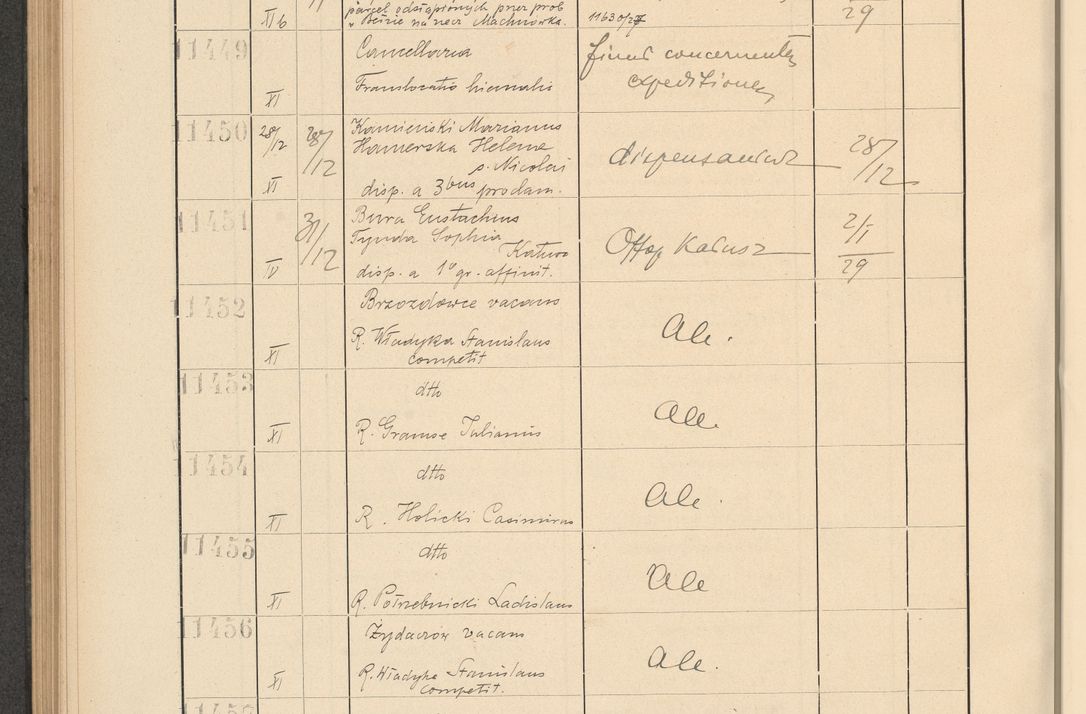 XI 6
parcel odstąpionych przez prob
w Bełzie na rzecz Machnówka.
11630/27
29
11449
Cancellaria
Translocatio hiemalis
XI
finis concernentes
expeditiones
11450
28/12
28/12
Kamieński Marianus
Hamerska Helena
s. Nicolai
disp. a 3bus proclam.
XI
dispensavimus
28/12
11451
31/12
Bura Eustachius
Tynda Sophia
disp. a 1° gr. affinit.
IV
2/I
29
11452
Brzozdowce vacans
R. Władyka Stanislaus
competit
XI
Ale.
11453
dtto
R. Gramse Julianus
XI
Ale.
11454
dtto
R. Holicki Casimirus
XI
Ale.
11455
dtto
R. Potrzebnicki Ladislaus
XI
Ale
11456
Żydaczów vacans
R. Władyka Stanislaus
competit.
XI
Ale.